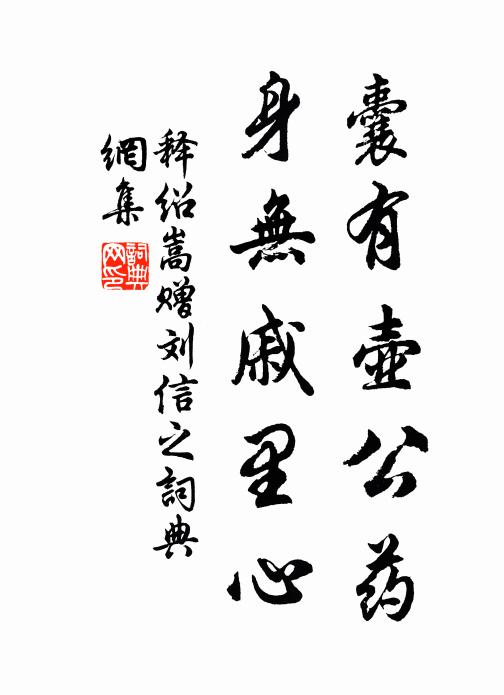 囊有壺公药
身無戚里心
释绍嵩赠刘信之詞典
網集
詞典
网印